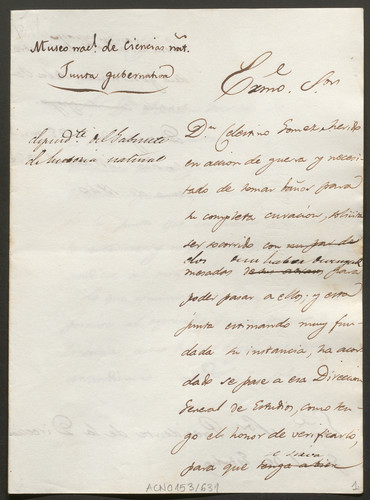 Museo nacl. de Ciencias nats.
Junta gubernativa
depend.te del Gabinete
de historia natural
Exmo. Sor
Dn Celestino Gomez, herido
en accion de guerra y necesi-
tado de tomar baños para
su completa curacion, solicita
ser socorrido con un par de
dos
mesadas para
poder pasar a ellos; y esta
junta estimando muy fun-
dada su instancia, ha acor-
dado se pase a esa Direccion
General de Estudios, como ten-
go el honor de verificarlo,
para que tenga a bien
ACN0153/631
1